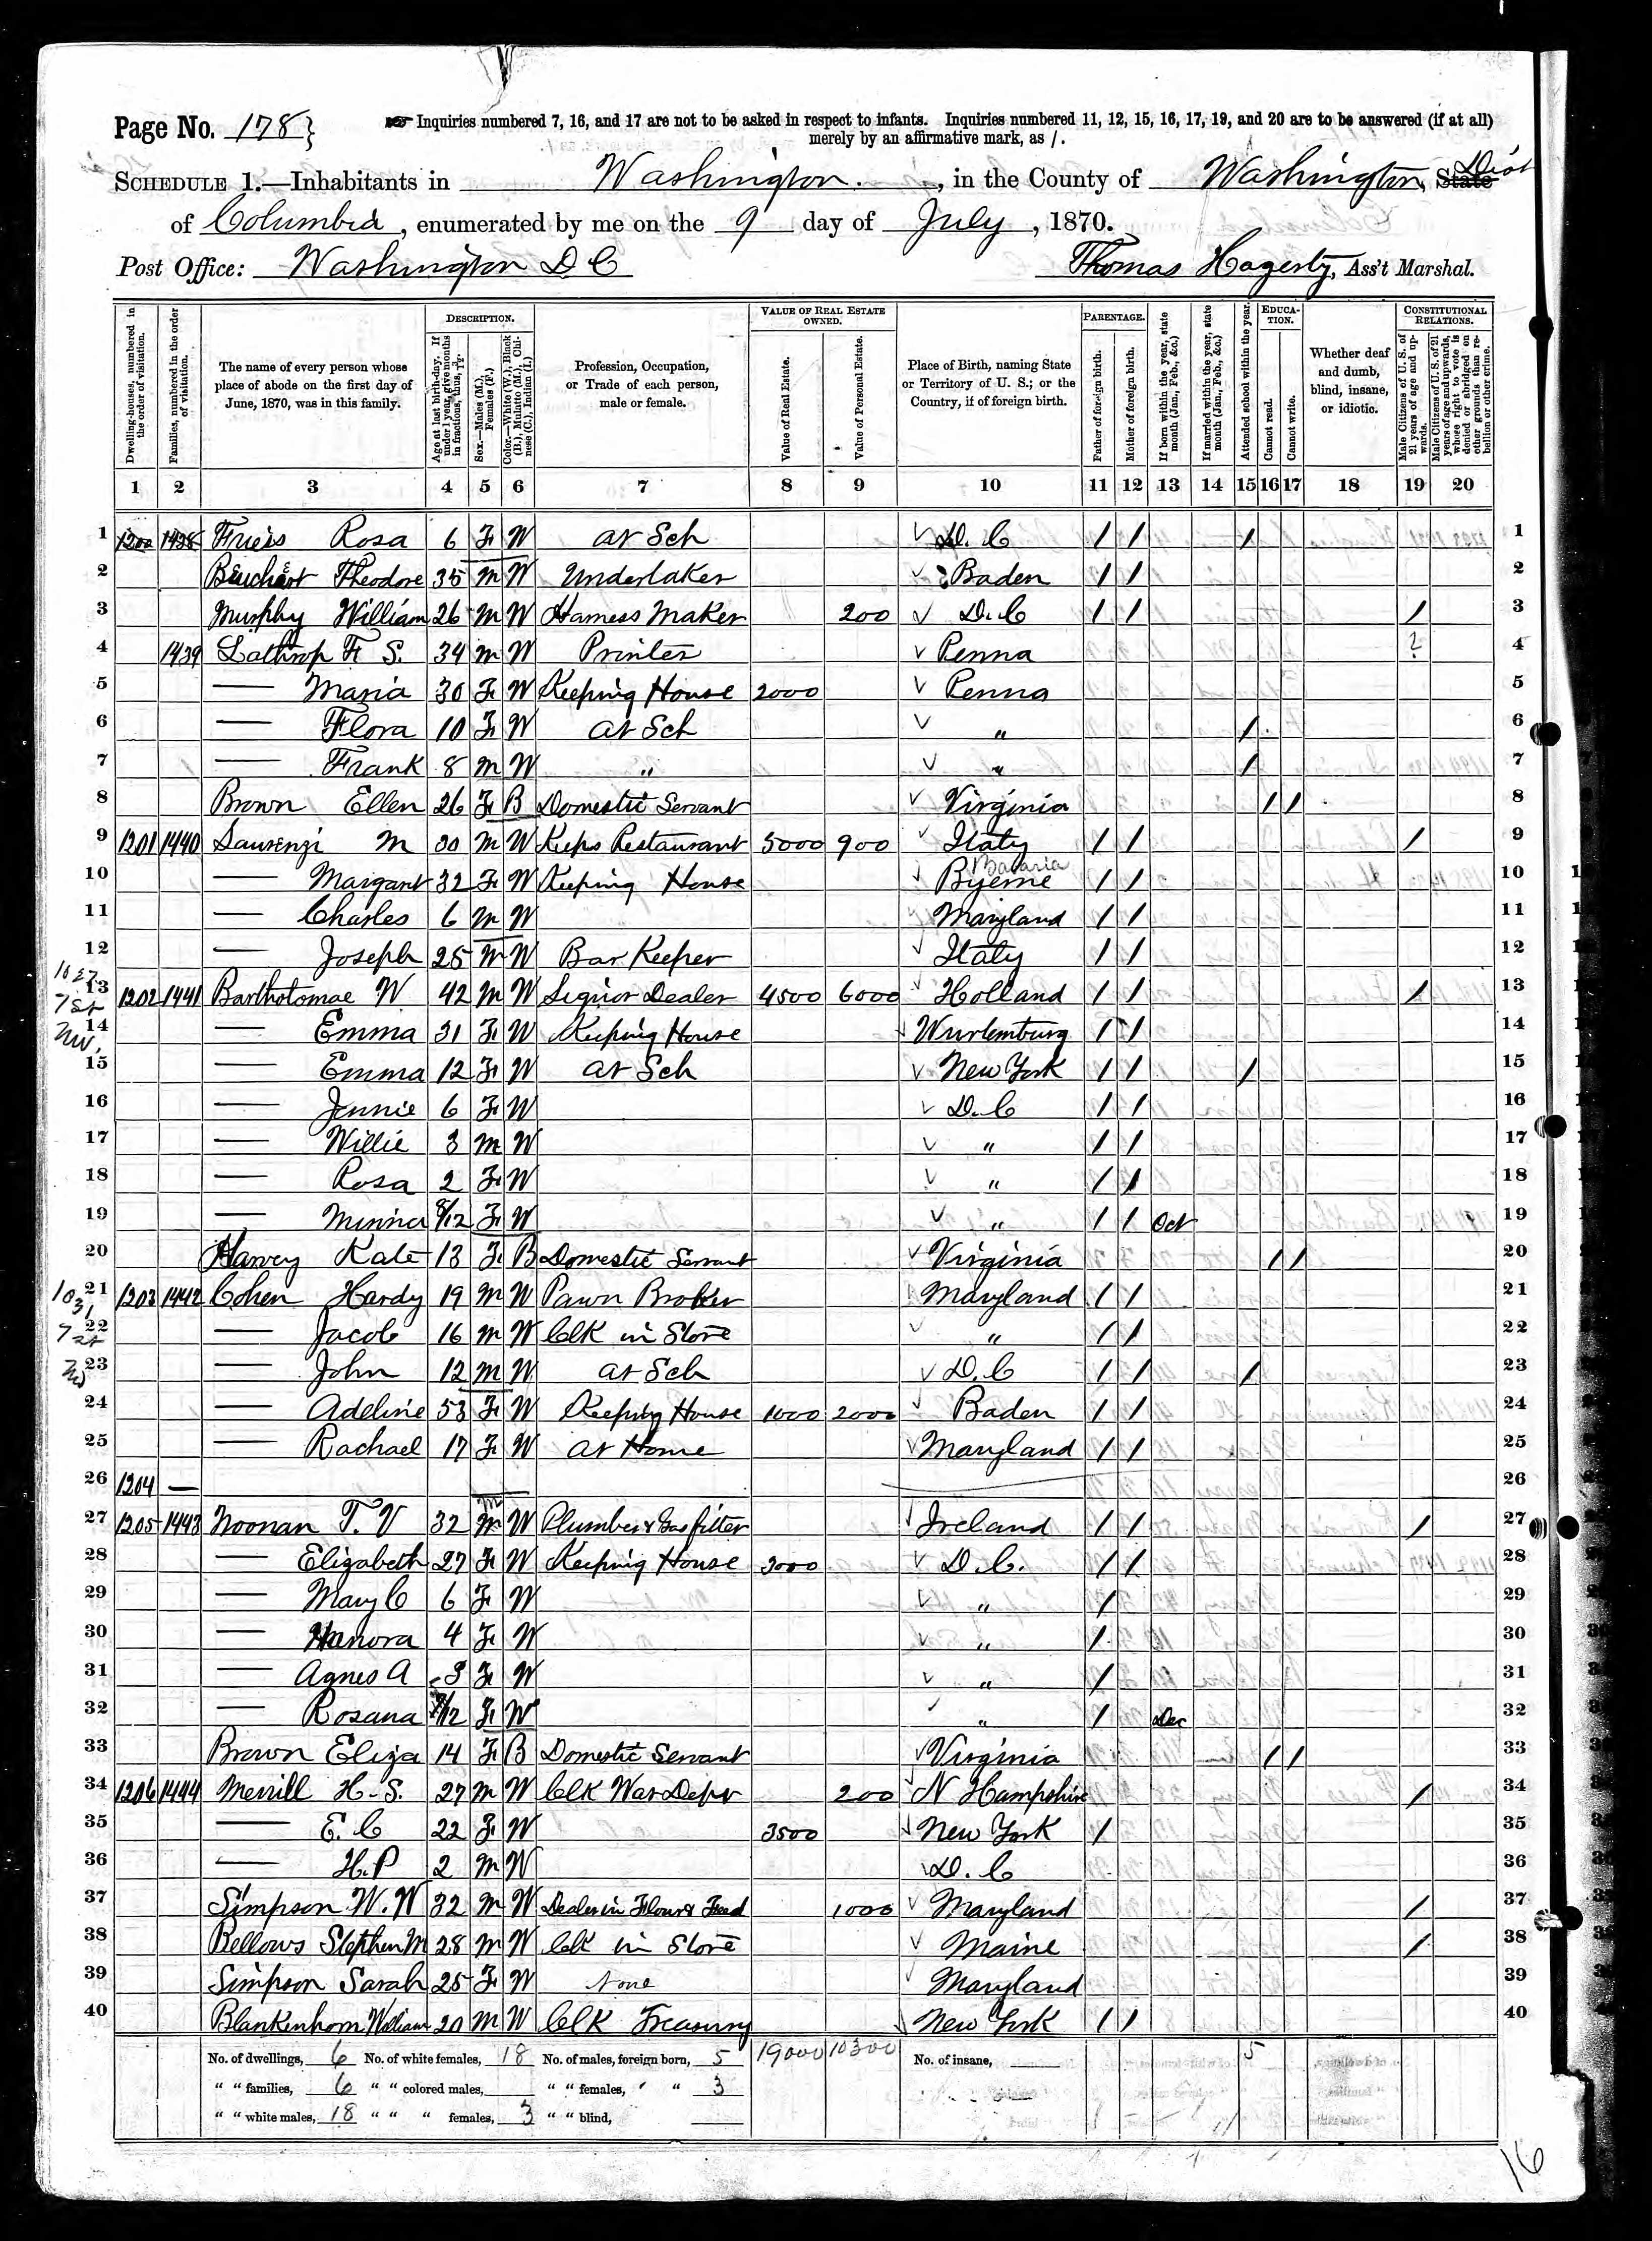 Page No. 178}
Inquiries numbered 7, 16, and 17 are not to be asked in respect to infants. Inquiries numbered 11, 12, 15, 16, 17, 19, and 20 are to be answered (if at all)
merely by an affirmative mark, as /.
SCHEDULE 1.—Inhabitants in Washington, in the County of Washington, State Dist
of Columbia, enumerated by me on the 9 day of July, 1870.
Post Office: Washington D C Thomas Hagerty, Ass't Marshal.
Dwelling-houses, numbered in the order of visitation.
Families, numbered in the order of visitation.
The name of every person whose place of abode on the first day of June, 1870, was in this family.
DESCRIPTION.
Age at last birth-day. If under 1 year, give months in fractions, thus, 3/12.
Sex.—Males (M.), Females (F.)
Color.—White (W.), Black (B.), Mulatto (M.), Chinese (C.), Indian (I.)
Profession, Occupation, or Trade of each person, male or female.
VALUE OF REAL ESTATE OWNED.
Value of Real Estate.
Value of Personal Estate.
Place of Birth, naming State or Territory of U. S.; or the Country, if of foreign birth.
PARENTAGE.
Father of foreign birth.
Mother of foreign birth.
If born within the year, state month (Jan., Feb., &c.)
If married within the year, state month (Jan., Feb., &c.)
EDUCATION.
Attended school within the year.
Cannot read.
Cannot write.
Whether deaf and dumb, blind, insane, or idiotic.
CONSTITUTIONAL RELATIONS.
Male Citizens of U. S. of 21 years of age and upwards.
Male Citizens of U. S. of 21 years of age and upwards, whose right to vote is denied or abridged on other grounds than rebellion or other crime.
1 2 3 4 5 6 7 8 9 10 11 12 13 14 15 16 17 18 19 20
1 1200 1438 Rosa 6 F W at Sch D. C / / / 1
2 Theodore 35 M W Undertaker Baden / / 2
3 Murphy William 26 M W Harness Maker 200 D. C / / / 3
4 1439 Lathrop F S. 34 M W Printer Penna ? 4
5 — Maria 30 F W Keeping House 2000 Penna 5
6 — Flora 10 F W at Sch " / 6
7 — Frank 8 M W " " / 7
8 Brown Ellen 26 F B Domestic Servant Virginia / / 8
9 1201 1440 M 30 M W Keeps Restaurant 5000 900 Italy / / / 9
10 — Margant 32 F W Keeping House Byerne Bavaria / / 10
11 — Charles 6 M W Maryland / / 11
12 — Joseph 25 M W Bar Keeper Italy / / 12
1027 7 St NW,
13 1202 1441 Bartholomae W 42 M W Liquor Dealer 4500 6000 Holland / / / 13
14 — Emma 31 F W Keeping House Wurtemburg / / 14
15 — Emma 12 F W at Sch New York / / / 15
16 — Jennie 6 F W D. C / / 16
17 — Willie 3 M W " / / 17
18 — Rosa 2 F W " / / 18
19 — Minnie 8/12 F W " / / Oct 19
20 Harvey Kate 13 F B Domestic Servant Virginia / / 20
1031 7 st NW
21 1203 1442 Cohen Hardy 19 M W Pawn Broker Maryland / / 21
22 — Jacob 16 M W Clk in Store " / / 22
23 — John 12 M W at Sch D. C / / / 23
24 — Adeline 53 F W Keeping House 1000 2000 Baden / / 24
25 — Rachael 17 F W At Home Maryland / / 25
26 1204 — 26
27 1205 1443 Noonan T. V 32 M W Plumber & Gas fitter Ireland / / / 27
28 — Elizabeth 27 F W Keeping House 3000 D. C. / / 28
29 — Mary C 6 F W " / 29
30 — Hanora 4 F W " / 30
31 — Agnes A 3 F W " / 31
32 — Rosana F W " / Dec 32
33 Brown Eliza 14 F B Domestic Servant Virginia / / 33
34 1206 1444 Merrill H. S. 27 M W Clk War Dept 200 N Hampshire / 34
35 — E. C 22 F W 3500 New York / 35
36 — H. P 2 M W D. C 36
37 Simpson W. W 32 M W Dealer in Flour & Feed 1000 Maryland / 37
38 Bellows Stephen M 28 M W Clk in Store Maine / 38
39 Simpson Sarah 25 F W None Maryland 39
40 Blankenhorn William 20 M W Clk Treasury New York / / 40
No. of dwellings, 6 No. of white females, 18 No. of males, foreign born, 5 19000 10300 No. of insane, 5
" " families, 6 " " colored males, " " females, " " 3
" " white males, 18 " " " females, 3 " " blind,
16